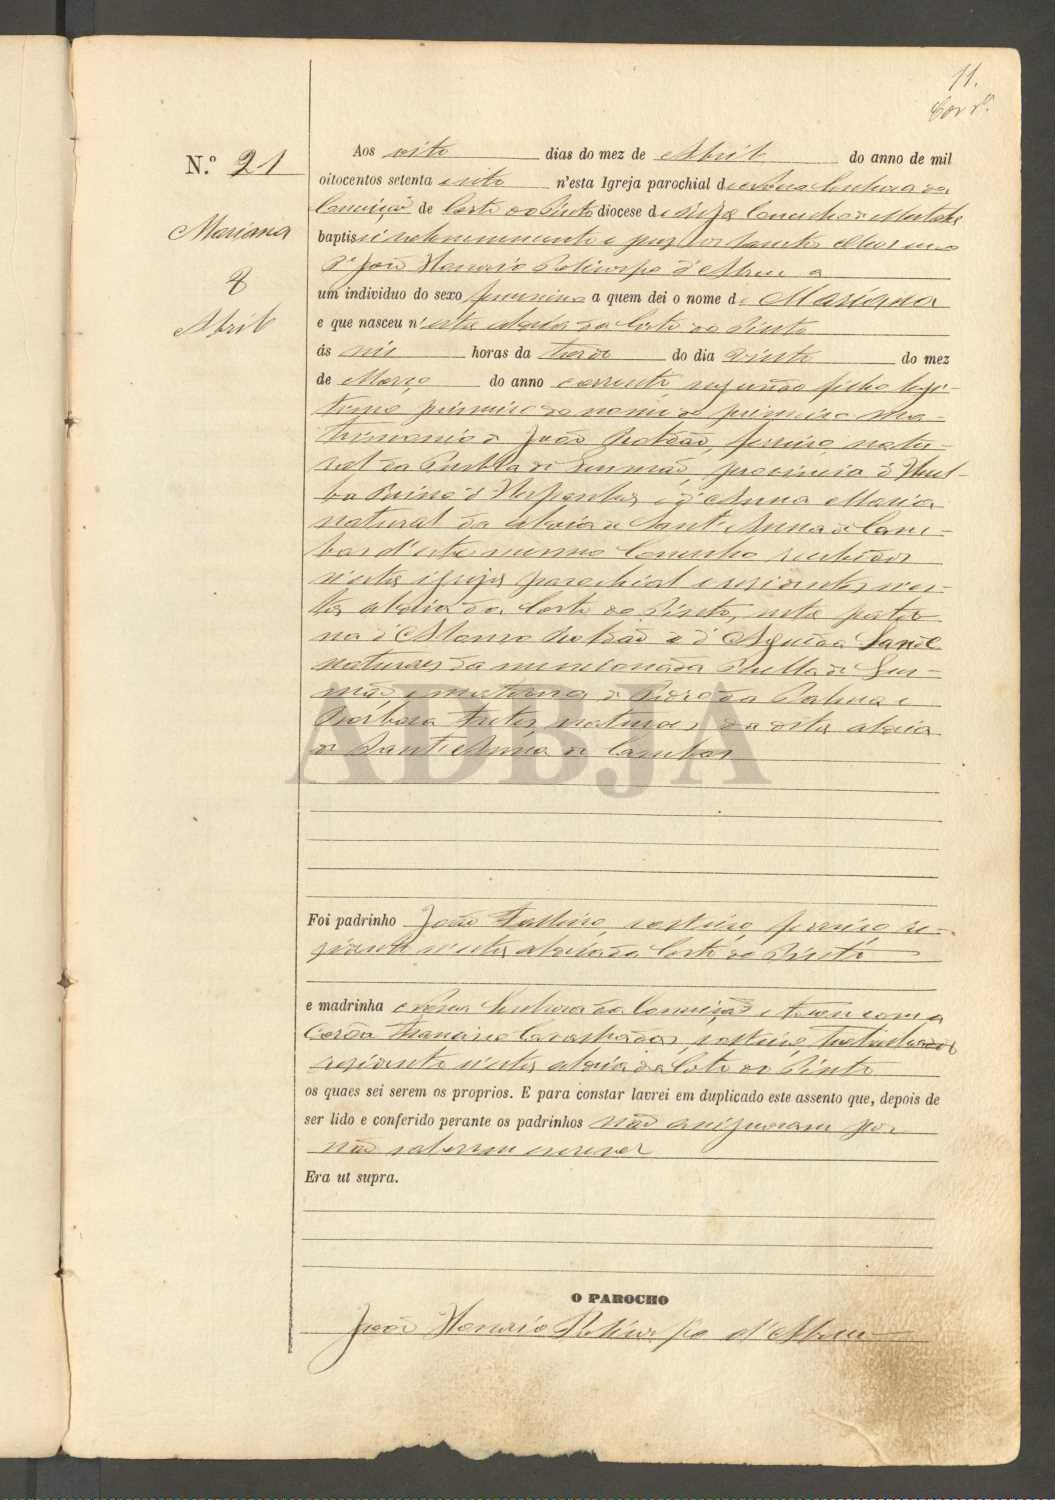 11.
N.º 21
Aos oito dias do mez de Abril do anno de mil
oitocentos setenta e oito n'esta Igreja parochial de Nossa Senhora da
Conceição de Corte do Pinto diocese de Beja Concelho de Mertola
baptisei solemnemente e puz os Santos Oleos eu o
P.e João Honorio Policarpo d'Abreu a
um individuo do sexo femenino a quem dei o nome de Mariana
e que nasceu n'esta aldeia da Corte do Pinto
ás seis horas da tarde do dia vinte do mez
de Março do anno corrente, segundo filho legi-
timo primeiro do nome do primeiro Ma-
trimonio de João Roldão, ferreiro, natu-
ral da Puebla de Gusmão, provincia d'Huel-
va Reino d'Hespanha e d'Anna Maria
natural da aldeia de Sant'Anna de Cam-
bas d'este mesmo Concelho, recebidos
n'esta igreja parochial e residentes n'es-
ta aldeia da Corte do Pinto, neta pater-
na d'Alonso Roldão e d'Agueda
naturaes da mencionada Puebla de Gus-
mão e materna de Pedro da Palma e
Barbara naturaes da dita aldeia
de Sant'Anna de Cambas
Mariana
8
Abril
Foi padrinho João ferreiro re-
sidente n'esta aldeia da Corte do Pinto
e madrinha Nossa Senhora da Conceição e tocou com a
Corôa Francisco solteiro, trabalhador
residente n'esta aldeia da Corte do Pinto
os quaes sei serem os proprios. E para constar lavrei em duplicado este assento que, depois de
ser lido e conferido perante os padrinhos não assignaram por
não saberem escrever
Era ut supra.
O PAROCHO
João Honorio Policarpo d'Abreu
ADBJA